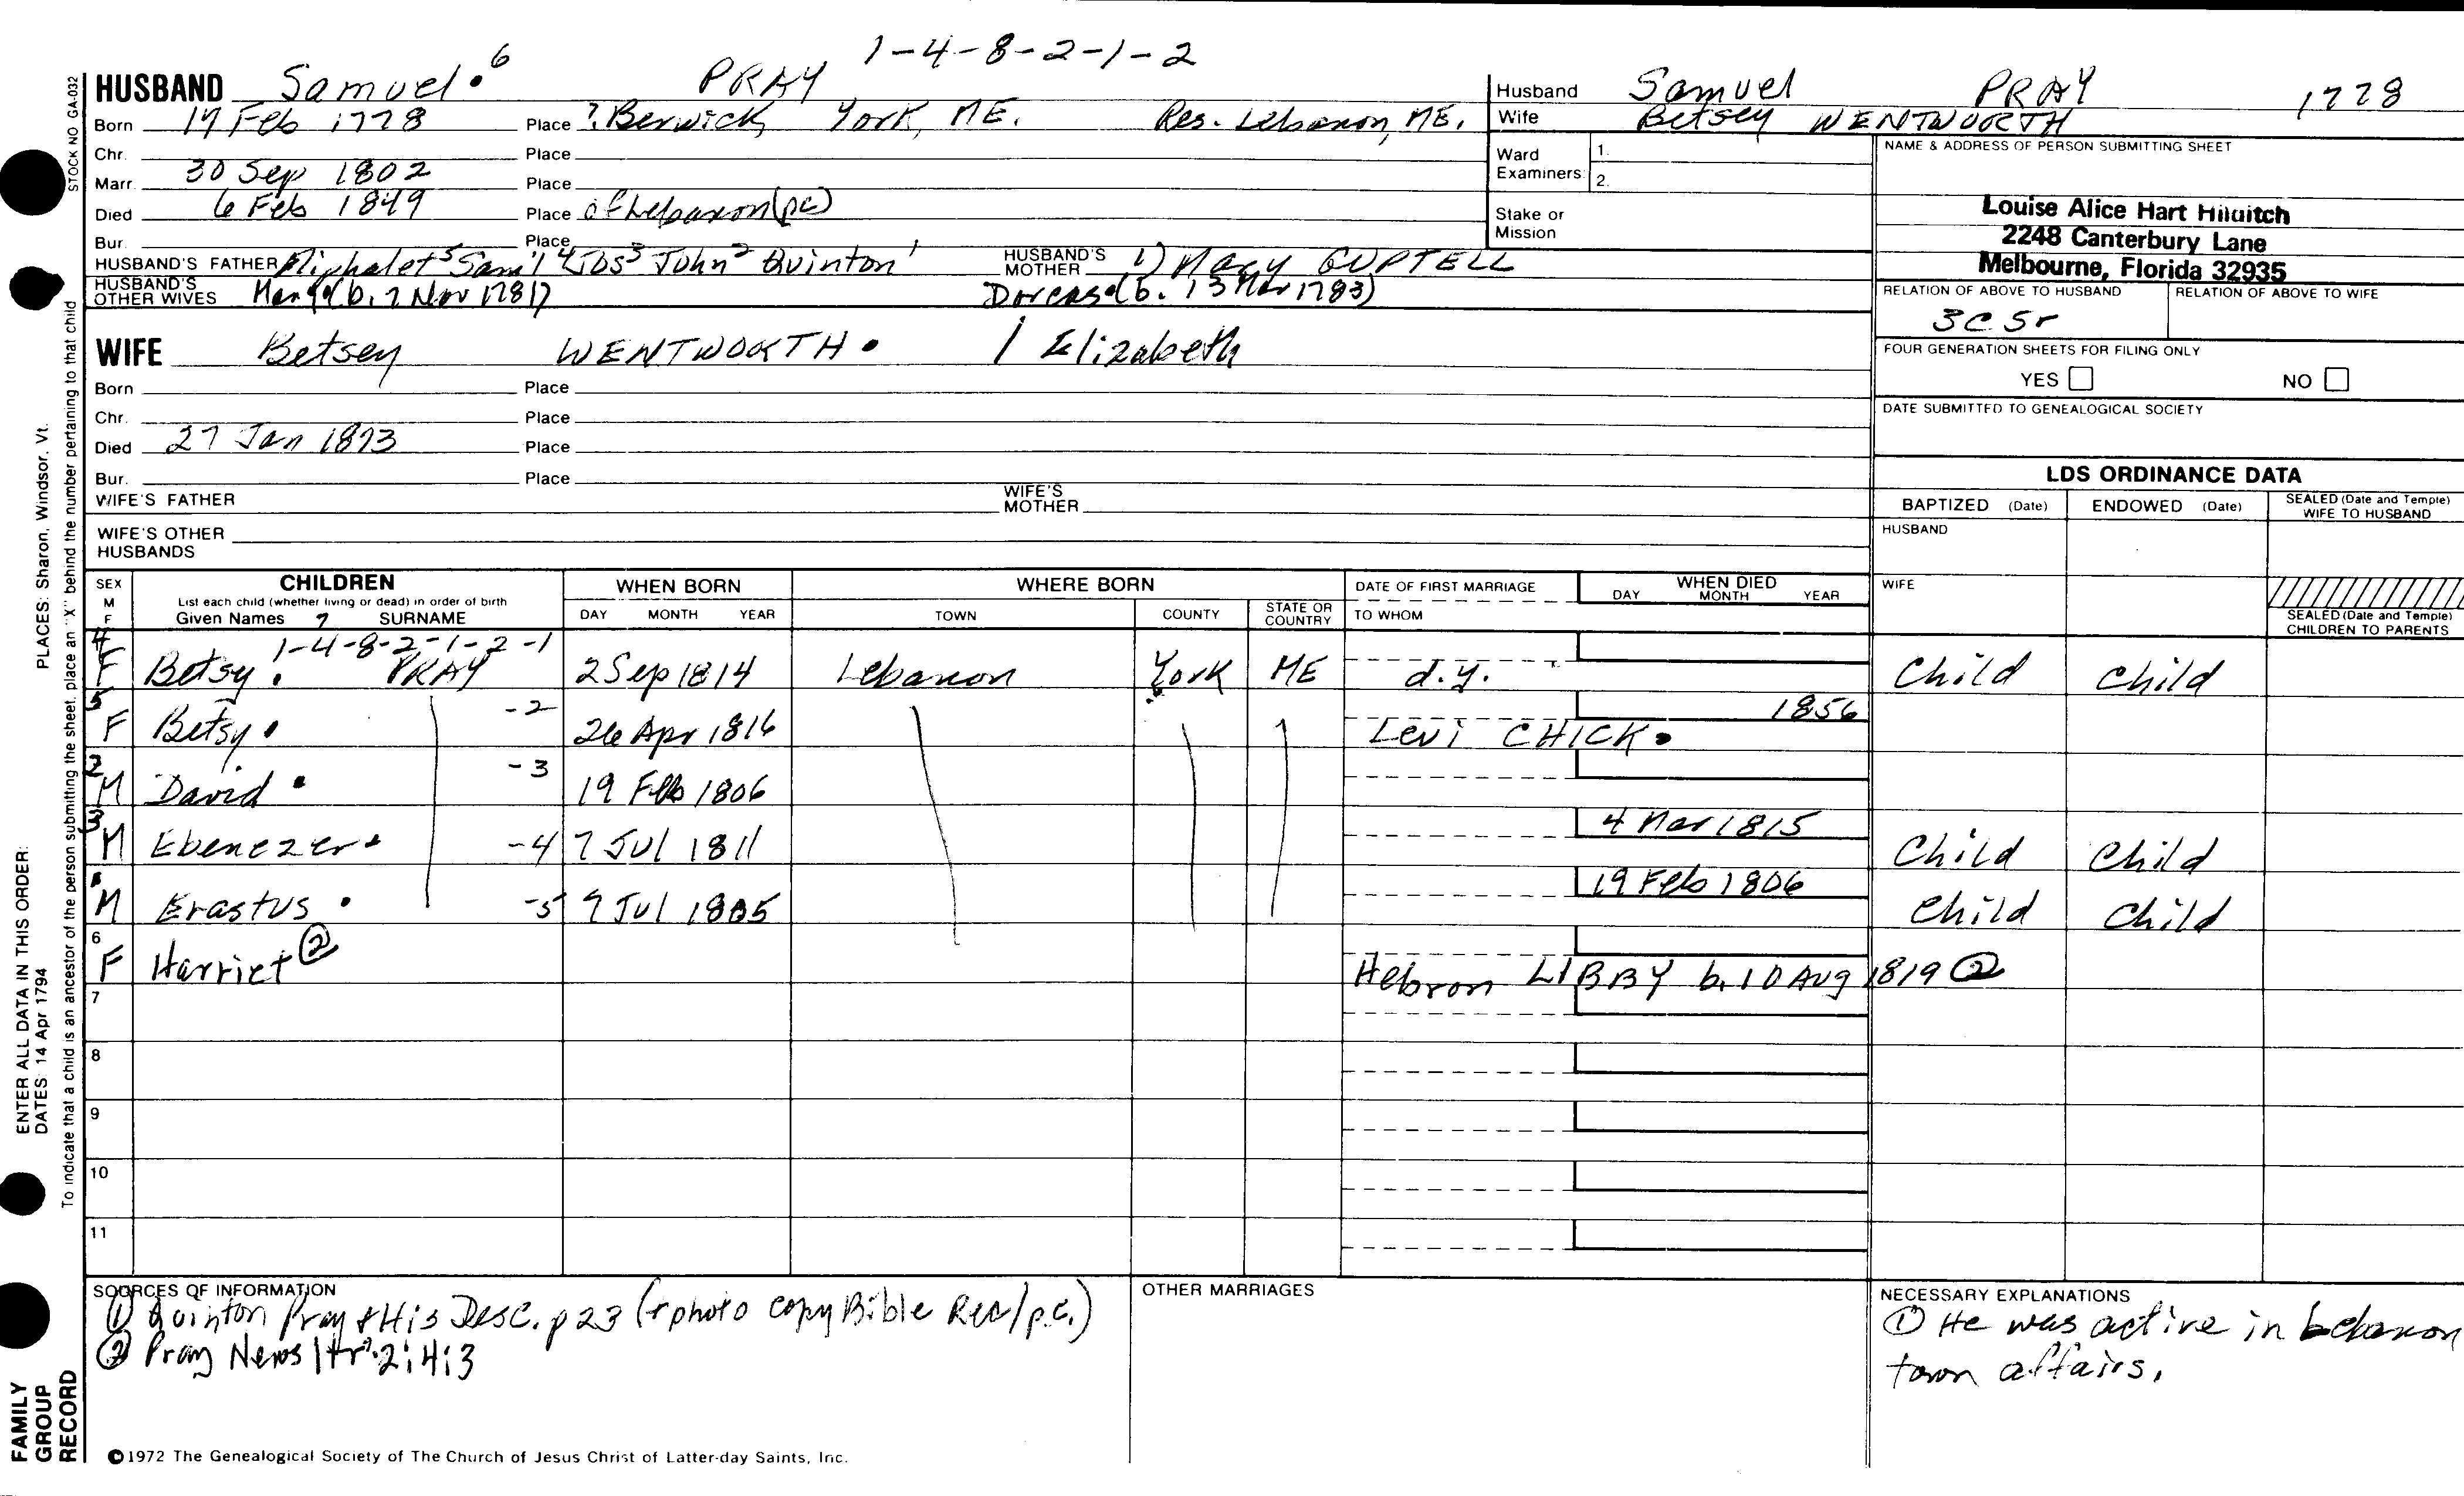 1-4-8-2-1-2
HUSBAND Samuel • 6 PRAY
Born 17 Feb 1778 Place ?. Berwick, York, ME. Res. Lebanon, ME.
Chr. Place
Marr. 30 Sep 1802 Place
Died 6 Feb 1849 Place of Lebanon (pc)
Bur. Place
HUSBAND'S FATHER Eliphalet5 Sam'l4 Jos3 John2 Quinton1 HUSBAND'S MOTHER 1) Mary GUPTELL
HUSBAND'S OTHER WIVES (b. 7 Nov 1781) Dorcas (b. 13 Mar 1783)
WIFE Betsey WENTWORTH • / Elizabeth
Born Place
Chr. Place
Died 27 Jan 1873 Place
Bur. Place
WIFE'S FATHER WIFE'S MOTHER
WIFE'S OTHER HUSBANDS
Husband Samuel PRAY 1778
Wife Betsey WENTWORTH
Ward Examiners: 1.
2.
Stake or Mission
NAME & ADDRESS OF PERSON SUBMITTING SHEET
Louise Alice Hart
2248 Canterbury Lane
Melbourne, Florida 32935
RELATION OF ABOVE TO HUSBAND RELATION OF ABOVE TO WIFE
3C 5r
FOUR GENERATION SHEETS FOR FILING ONLY
YES NO
DATE SUBMITTED TO GENEALOGICAL SOCIETY
LDS ORDINANCE DATA
BAPTIZED (Date) ENDOWED (Date) SEALED (Date and Temple) WIFE TO HUSBAND
HUSBAND
WIFE
SEALED (Date and Temple) CHILDREN TO PARENTS
SEX M F CHILDREN WHEN BORN WHERE BORN DATE OF FIRST MARRIAGE WHEN DIED
List each child (whether living or dead) in order of birth
Given Names 7 SURNAME DAY MONTH YEAR TOWN COUNTY STATE OR COUNTRY TO WHOM DAY MONTH YEAR
1-4-8-2-1-2-1
4 F Betsy • PRAY 2 Sep 1814 Lebanon York ME d.y. Child Child
5 F Betsy • -2 26 Apr 1816 Levi CHICK • 1856
2 M David • -3 19 Feb 1806
3 M Ebenezer • -4 7 Jul 1811 4 Mar 1815 Child Child
1 M Erastus • -5 9 Jul 1805 19 Feb 1806 Child Child
6 F Harriet ② Hebron LIBBY b. 10 Aug 1819 ②
7
8
9
10
11
SOURCES OF INFORMATION
① Quinton Pray & His Desc. p 23 (+ photo copy Bible Rec/p.c.)
② Pray News 2:4:3
OTHER MARRIAGES
NECESSARY EXPLANATIONS
① He was active in Lebanon
town affairs.
©1972 The Genealogical Society of The Church of Jesus Christ of Latter-day Saints, Inc.
STOCK NO GA-032
To indicate that a child is an ancestor of the person submitting the sheet, place an "X" behind the number pertaining to that child
PLACES: Sharon, Windsor, Vt.
ENTER ALL DATA IN THIS ORDER:
DATES: 14 Apr 1794
FAMILY GROUP RECORD